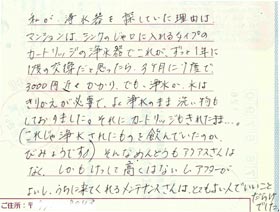 私が、浄水器を探していた理由は
マンションは、シンクのじゃ口に入れるタイプの
カートリッジの浄水器でこれが、ずっと1年に
1度の交換だと思ったら、3ヶ月に1度で、
3000円近くかかり、でも、浄水か、水は
きりかえが必要で、よく浄水のまま洗い物も
しておりました。それにカートリッジもきれたま…。
(これじゃ浄水されにものを飲んでいたのか、
びみょうです)そんなめんどうもアクアスさんは
なく、しかもけっして高くはないし、アフターが
よいし、うちに来てくれるメンテナンスさんは、とてもよい人でいいこと
だらけ
でした。
ご住所:〒